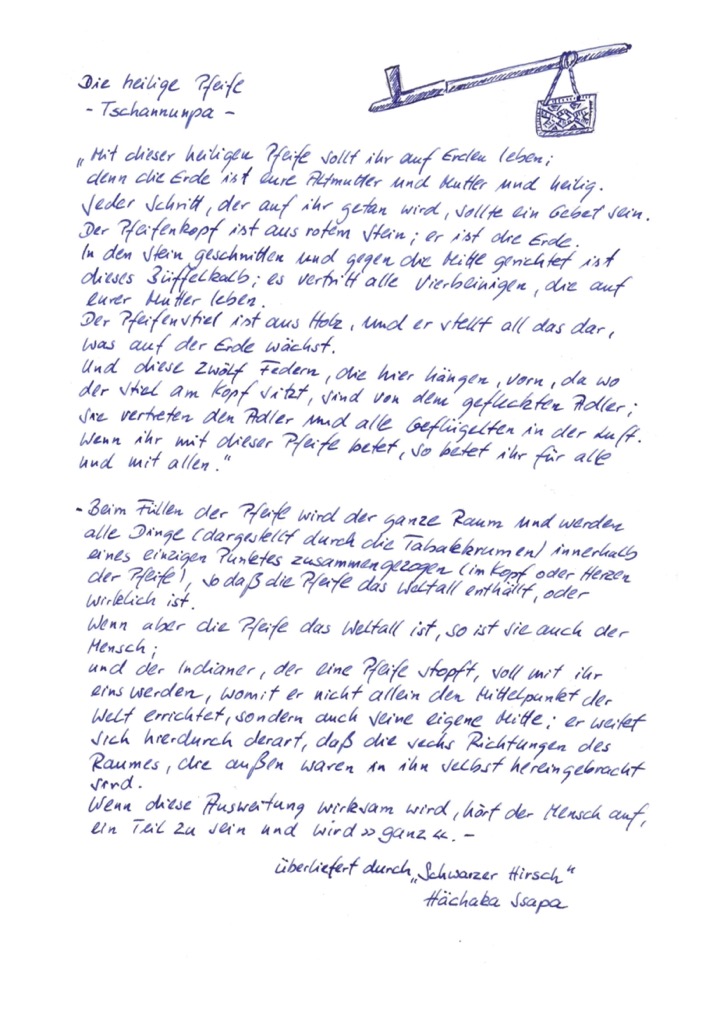 Die heilige Pfeife
- Tschannunpa -
„Mit dieser heiligen Pfeife sollt ihr auf Erden leben;
denn die Erde ist eure Altmutter und Mutter und heilig.
Jeder Schritt, der auf ihr getan wird, sollte ein Gebet sein.
Der Pfeifenkopf ist aus rotem Stein; er ist die Erde.
In den Stein geschnitten und gegen die Mitte gerichtet ist
dieses Büffelkalb; es vertritt alle Vierbeinigen, die auf
eurer Mutter leben.
Der Pfeifenstiel ist aus Holz, und er stellt all das dar,
was auf der Erde wächst.
Und diese zwölf Federn, die hier hängen, vorn, da wo
der Stiel am Kopf sitzt, sind von dem gefleckten Adler;
sie vertreten den Adler und alle Geflügelten in der Luft.
Wenn ihr mit dieser Pfeife betet, so betet ihr für alle
und mit allen."
- Beim Füllen der Pfeife wird der ganze Raum und werden
alle Dinge (dargestellt durch die Tabakkrumen) innerhalb
eines einzigen Punktes zusammengezogen (im Kopf oder Herzen
der Pfeife), so daß die Pfeife das Weltall enthällt, oder
wirklich ist.
Wenn aber die Pfeife das Weltall ist, so ist sie auch der
Mensch;
und der Indianer, der eine Pfeife stopft, soll mit ihr
eins werden, womit er nicht allein den Mittelpunkt der
Welt errichtet, sondern auch seine eigene Mitte; er weitet
sich hierdurch derart, daß die sechs Richtungen des
Raumes, die außen waren in ihn selbst hereingebracht
sind.
Wenn diese Ausweitung wirksam wird, hört der Mensch auf,
ein Teil zu sein und wird »ganz«. -
überliefert durch „Schwarzer Hirsch"
Hächaka Ssapa